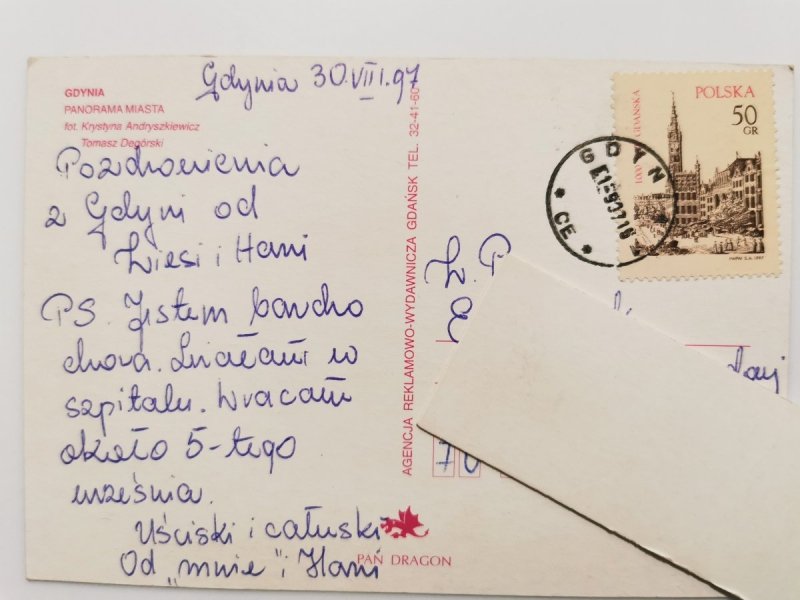 Gdynia 30.VIII.97
GDYNIA
PANORAMA MIASTA
fot. Krystyna Andryszkiewicz
Tomasz Degórski
Pozdrowienia
z Gdyni od
Wiesi i Hani
PS. Jestem bardzo
chora. Leżałam w
szpitalu. Wracam
około 5-tego
września.
Uściski i całuski
Od „mnie" i Hani
PAN DRAGON
AGENCJA REKLAMOWO-WYDAWNICZA GDAŃSK TEL. 32-41-60
POLSKA
50
GR
GDAŃSKA
GDYN
W. P.
70